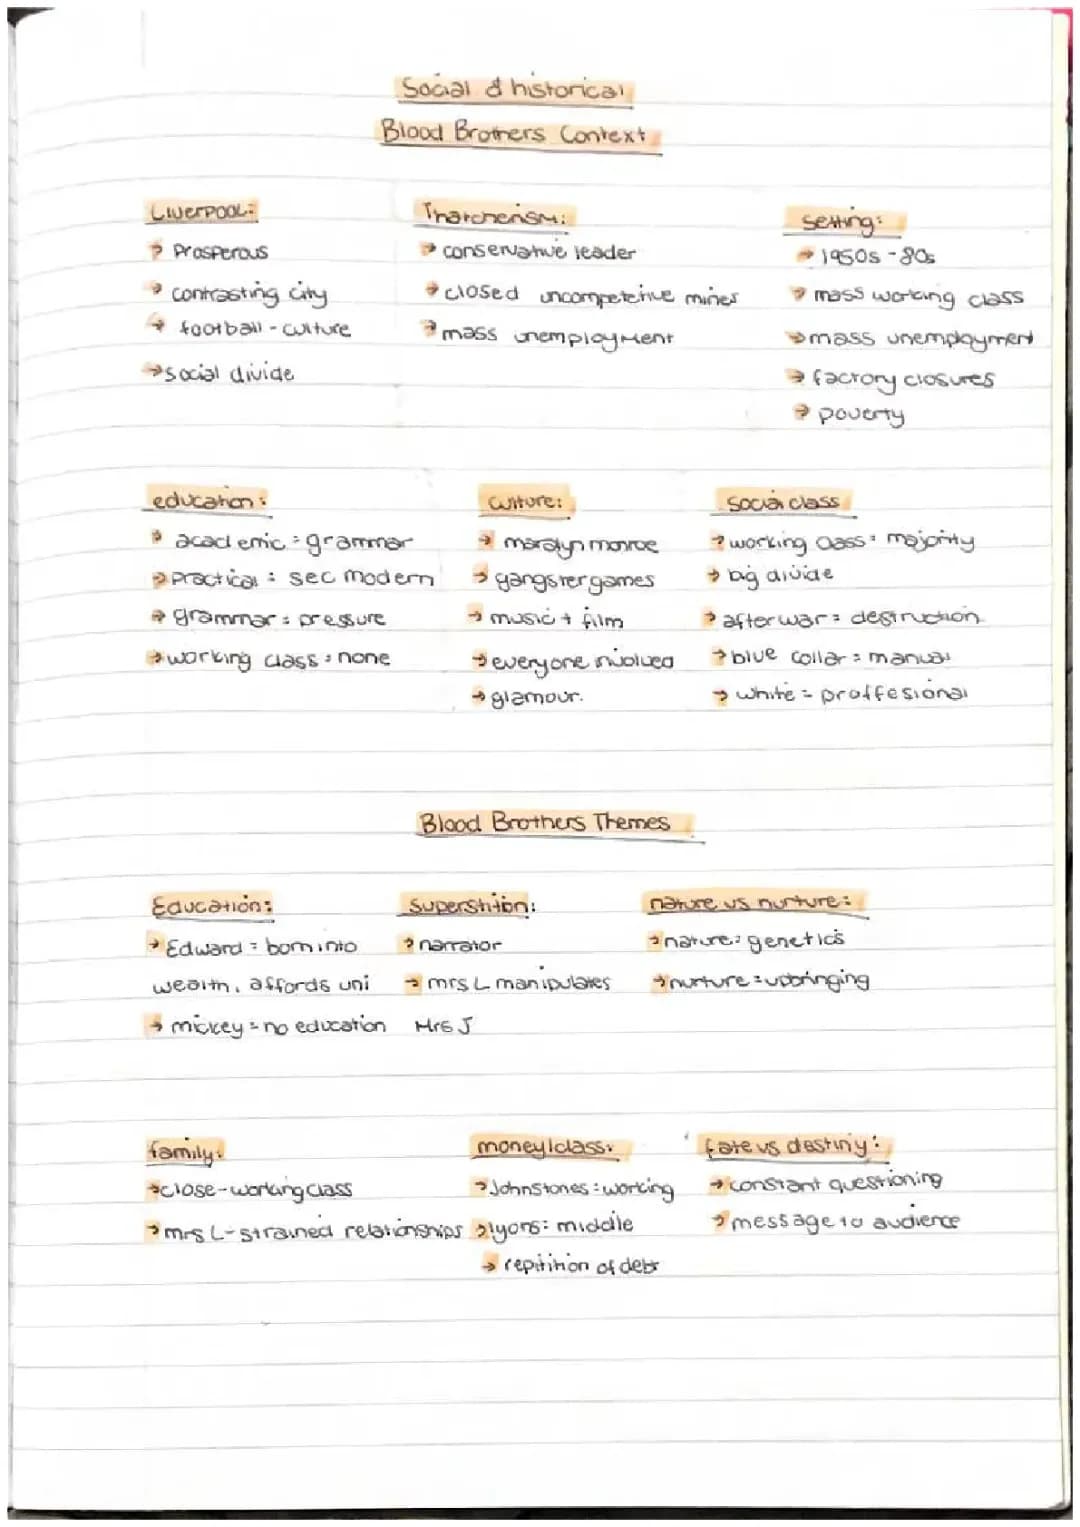 Social & historical
Blood Brothers Context
Liverpool:
→ Prosperous
→ contrasting city
→ football-culture
→ social divide
Thatcherism:
→ conservative leader
→ closed uncompetetive mines
→ mass unemployment
setting:
→ 1950s - 80s
→ mass working class
→ mass unemployment
→ factory closures
→ poverty
education:
→ academic = grammar
→ Practical = sec modern
→ grammar = pressure
→ working class = none
culture:
→ maralyn monroe
→ gangster games
→ music + film
→ everyone nvolved
→ glamour.
Social class
→ working class = majority
→ big divide
→ after war = destruction
→ blue collar = manual
→ white = proffesional
Blood Brothers Themes
Education:
→ Edward = born into
wealth, affords uni
→ mickey = no education
superstition:
→ narrator
→ mrs L manipulates
Mrs J
nature vs nurture:
→ nature = genetics
→ nurture = upbringing
family:
→ close-working class
→ mrs L - strained relationships
money/class:
→ Johnstones = working
→ lyons = middle
→ repitition of debt
fate vs destiny:
→ constant questioning
→ message to audience